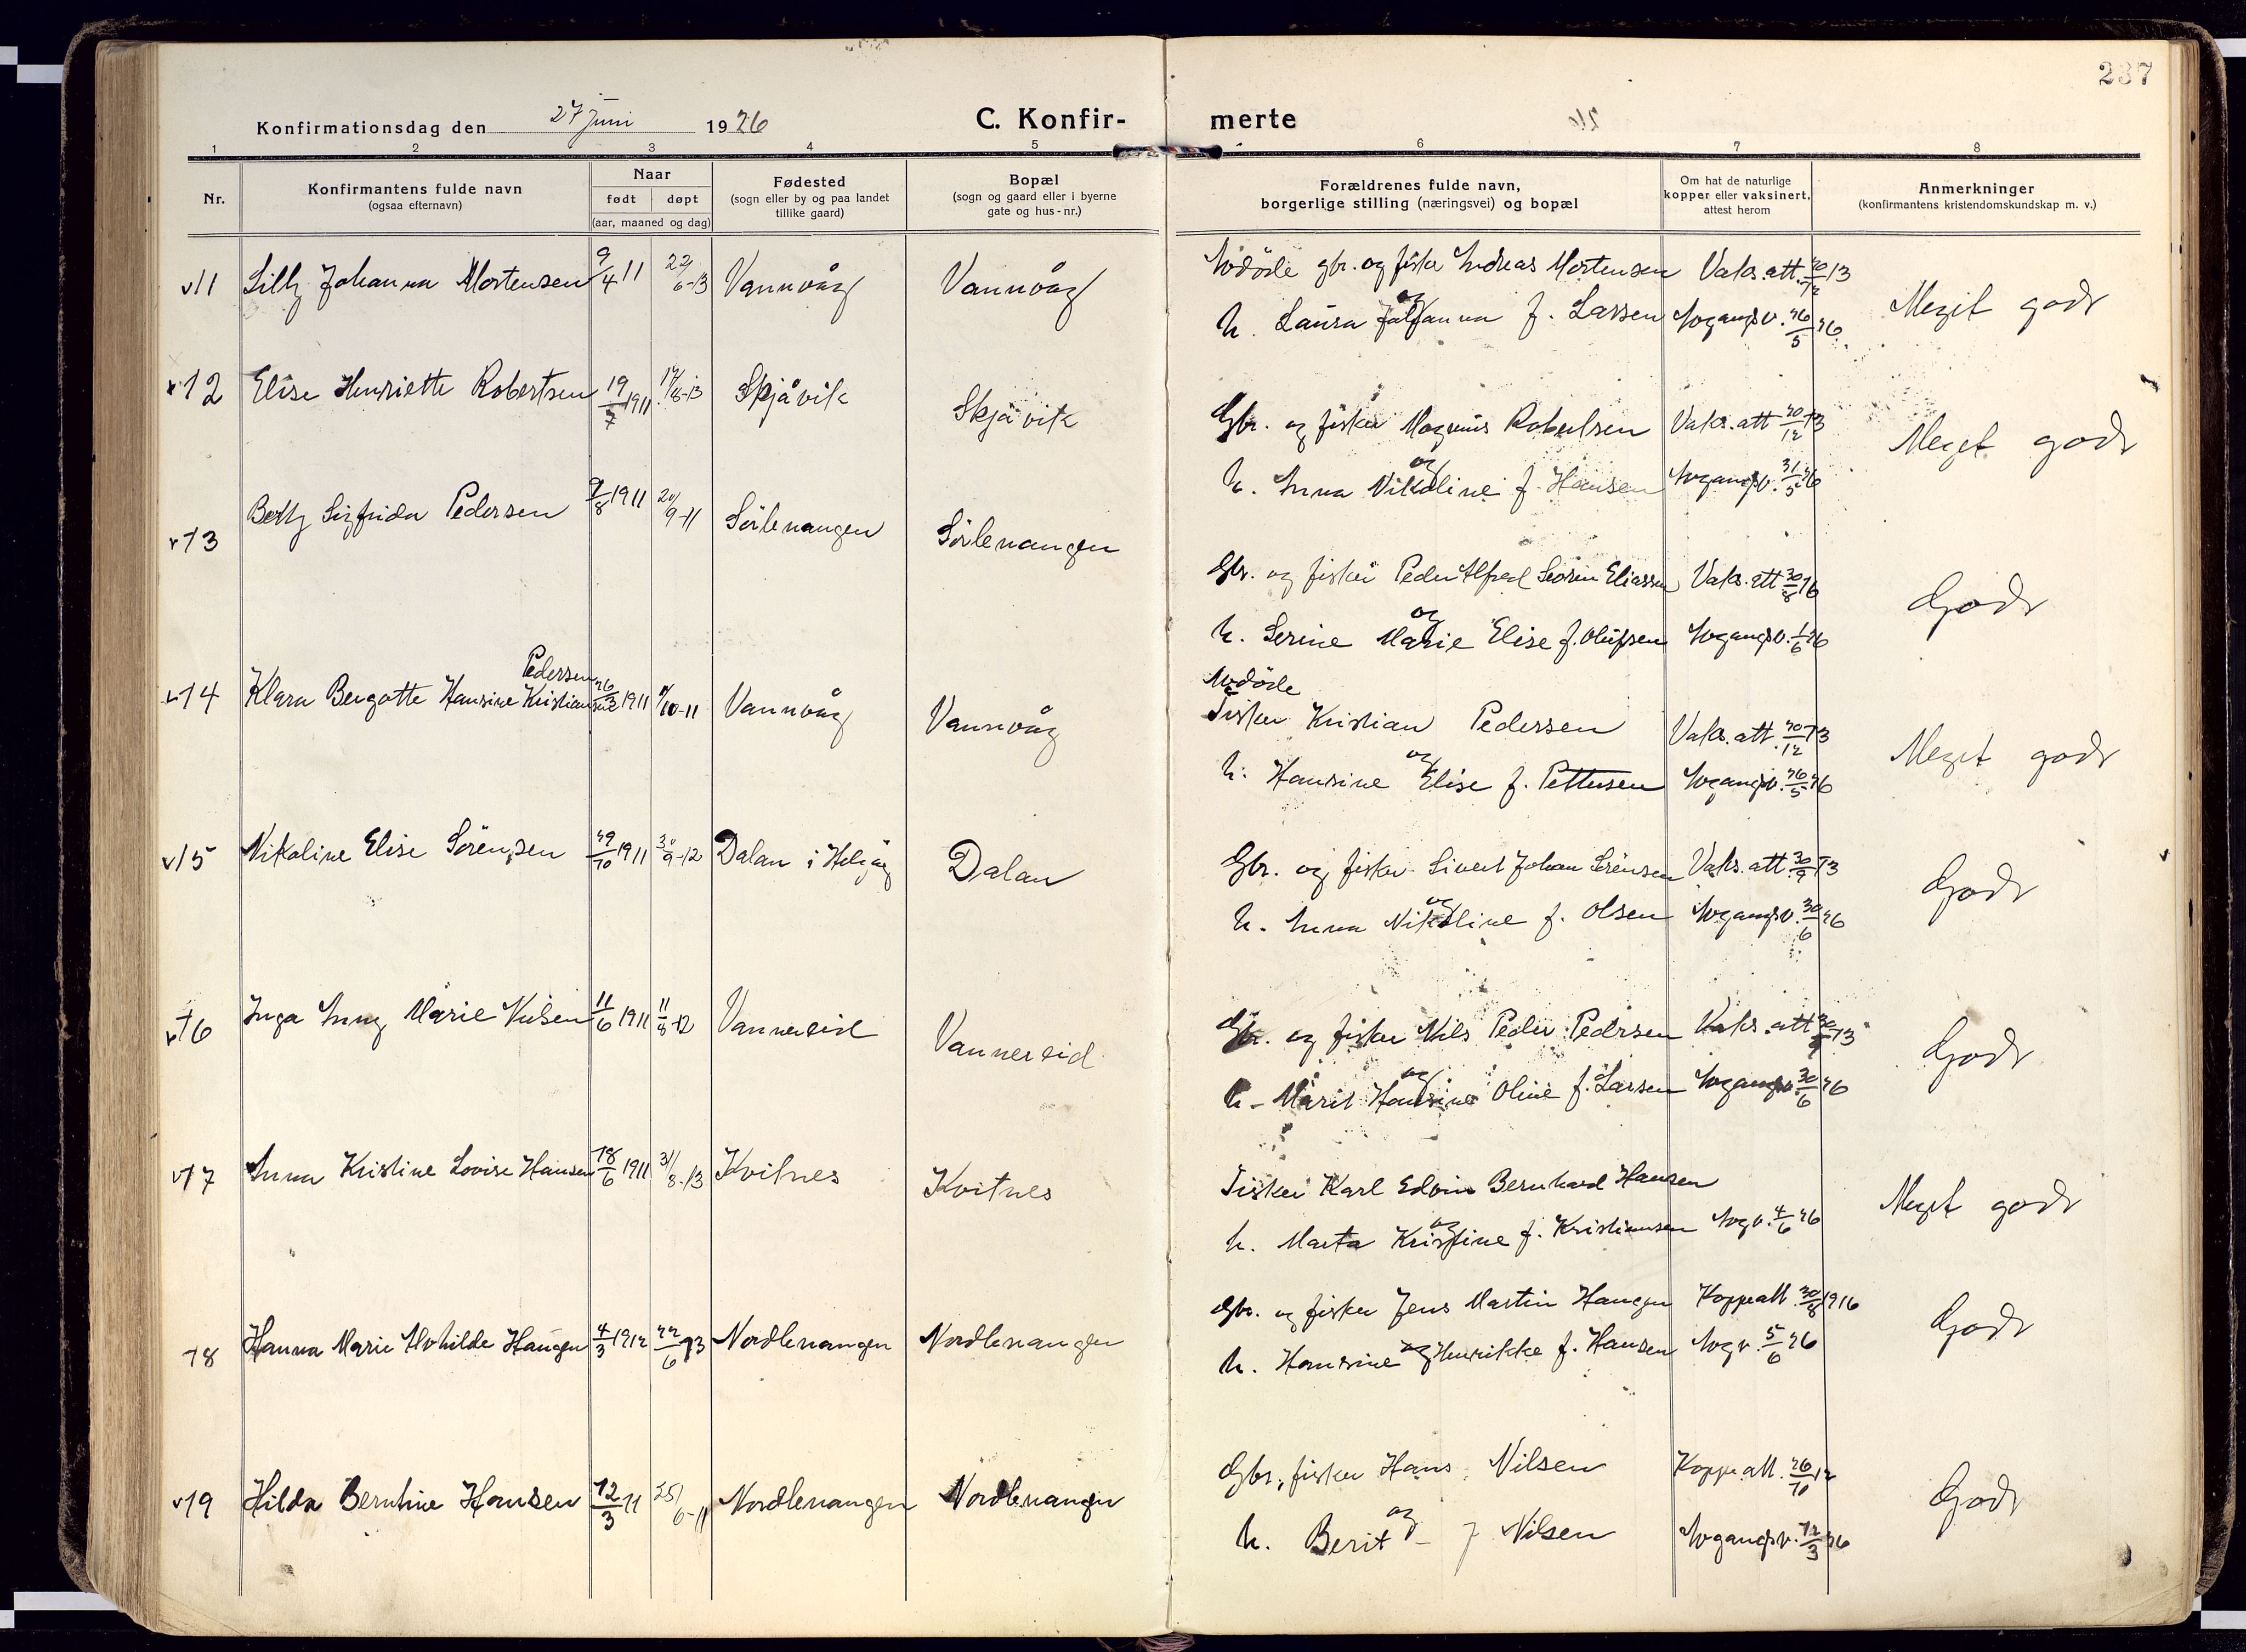 237
Konfirmationsdag den 27 Juni 1926 C. Konfir- merte
1 2 3 4 5 6 7 8
Nr.
Konfirmantens fulde navn
(ogsaa efternavn)
Naar
født døpt
(aar, maaned og dag)
Fødested
(sogn eller by og paa landet
tillike gaard)
Bopæl
(sogn og gaard eller i byerne
gate og hus-nr.)
Forældrenes fulde navn,
borgerlige stilling (næringsvei) og bopæl
Om hat de naturlige
kopper eller vaksinert,
attest herom
Anmerkninger
(konfirmantens kristendomskundskap m. v.)
11 Lilly Johanna Mortensen 9/4 11 22/6-13 Vannvåg Vannvåg
gbr. og fisker Andreas Mortensen Vaks. att. 20/12 13
og
h. Laura Johanna f. Larsen 26/5 26 Meget godt
12 Elise Henriette Robertsen 19/7 1911 17/8-13 Skjåvik Skjåvik
Gbr. og fisker Magnus Robertsen Vaks. att 20/12 13
og
h. Anna Nikoline f. Hansen 31/5 26 Meget godt
13 Betty Sigfrida Pedersen 9/8 1911 20/9-11 Sörlenangen Sörlenangen
Gbr. og fisker Peder Alfred Sören Eliassen Vaks. att 30/8 16
og
h. Serine Marie Elise f. Olufsen 1/6 26 Godt
Pedersen
14 Klara Bergotte Hansine Kristianne 26/3 1911 /10-11 Vannvåg Vannvåg
Fisker Kristian Pedersen Vaks. att. 20/12 13
og
h. Hansine Elise f. Pettersen 26/5 26 Meget godt
15 Nikoline Elise Sörensen 29/10 1911 30/9-12 Dalan i Helgöy Dalan
Gbr. og fisker Sivert Johan Sörensen Vaks. att. 30/9 13
og
h. Anna Nikoline f. Olsen 30/6 26 Godt
16 Inga Anny Marie Nilsen 11/6 1911 11/8-12 Vannereid Vannereid
Gbr. og fisker Nils Peder Pedersen Vaks. att 30/9 13
og
h. Marit Hansine Oline f. Larsen 30/6 26 Godt
17 Anna Kristine Lovise Hansen 18/6 1911 31/8-13 Kvitnes Kvitnes
Fisker Karl Edvin Bernhard Hansen
og
h. Marta Kristine f. Kristiansen 4/6 26 Meget godt
18 Hanna Marie Mohilde Haugen 4/3 1912 22/6 13 Nordlenangen Nordlenangen
Gbr. og fisker Jens Martin Haugen Koppeatt. 30/8 1916
h. Hansine og Henrikke f. Hansen 5/6 26 Godt
19 Hilda Berntine Hansen 12/3 11 25/6-11 Nordlenangen Nordlenangen
Gbr., fisker Hans Nilsen Koppe att. 26/10 12
og
h. Berit - f Nilsen 12/3 26 Godt